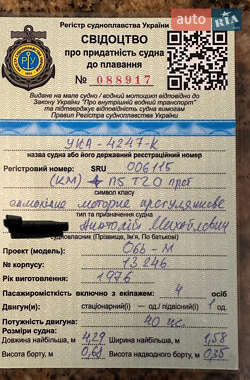 auto RIA
Регістр судноплавства України
СВІДОЦТВО
про придатність судна
до плавання
№ 088917
Видане на мале судно / водний мотоцикл відповідно до
Закону України "Про внутрішній водний транспорт"
та підтверджує відповідність судна вимогам
Правил Регістра судноплавства України
УКА-4247-К
назва судна або його державний реєстраційний номер
Регістровий номер: SRU 006115
(КМ) П5 Т20
символ класу
самохідне моторне прогулянкове
тип та призначення судна
Анатолій Михайлович
(Прізвище, Ім'я, По батькові)
Проект (модель): Обь-М
№ корпусу: 13246
Рік виготовлення: 1976
Пасажиромісткість включно з екіпажем: 4 осіб
Двигуни(и): 1 од.
Потужність двигуна: 40 кс.
Розміри судна:
Довжина найбільша, м 4,29 Ширина найбільша, м 1,58
Висота борту, м 0,61 Висота надводного борту, м 0,35